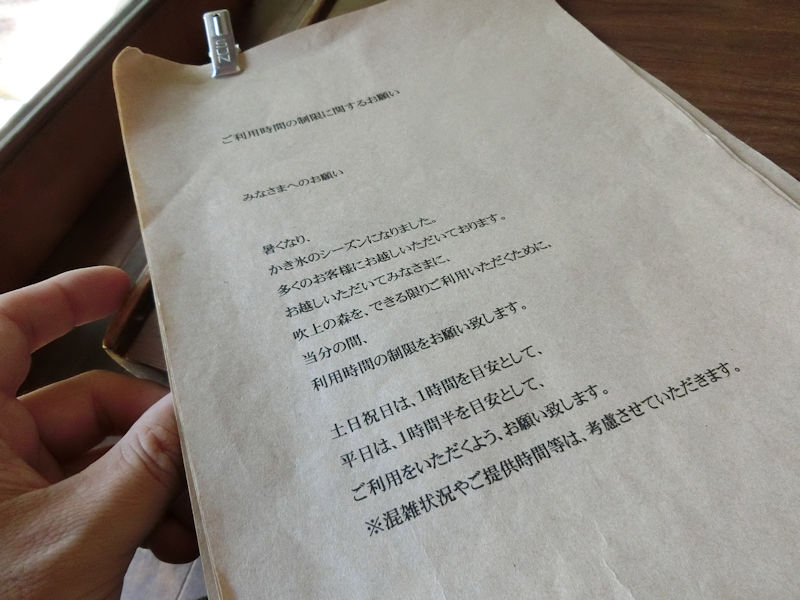 SUN
ご利用時間の制限に関するお願い
みなさまへのお願い
暑くなり、
かき氷のシーズンになりました。
多くのお客様にお越しいただいております。
お越しいただいてみなさまに、
吹上の森を、できる限りご利用いただくために、
当分の間、
利用時間の制限をお願い致します。
土日祝日は、1時間を目安として、
平日は、1時間半を目安として、
ご利用をいただくよう、お願い致します。
※混雑状況やご提供時間等は、考慮させていただきます。